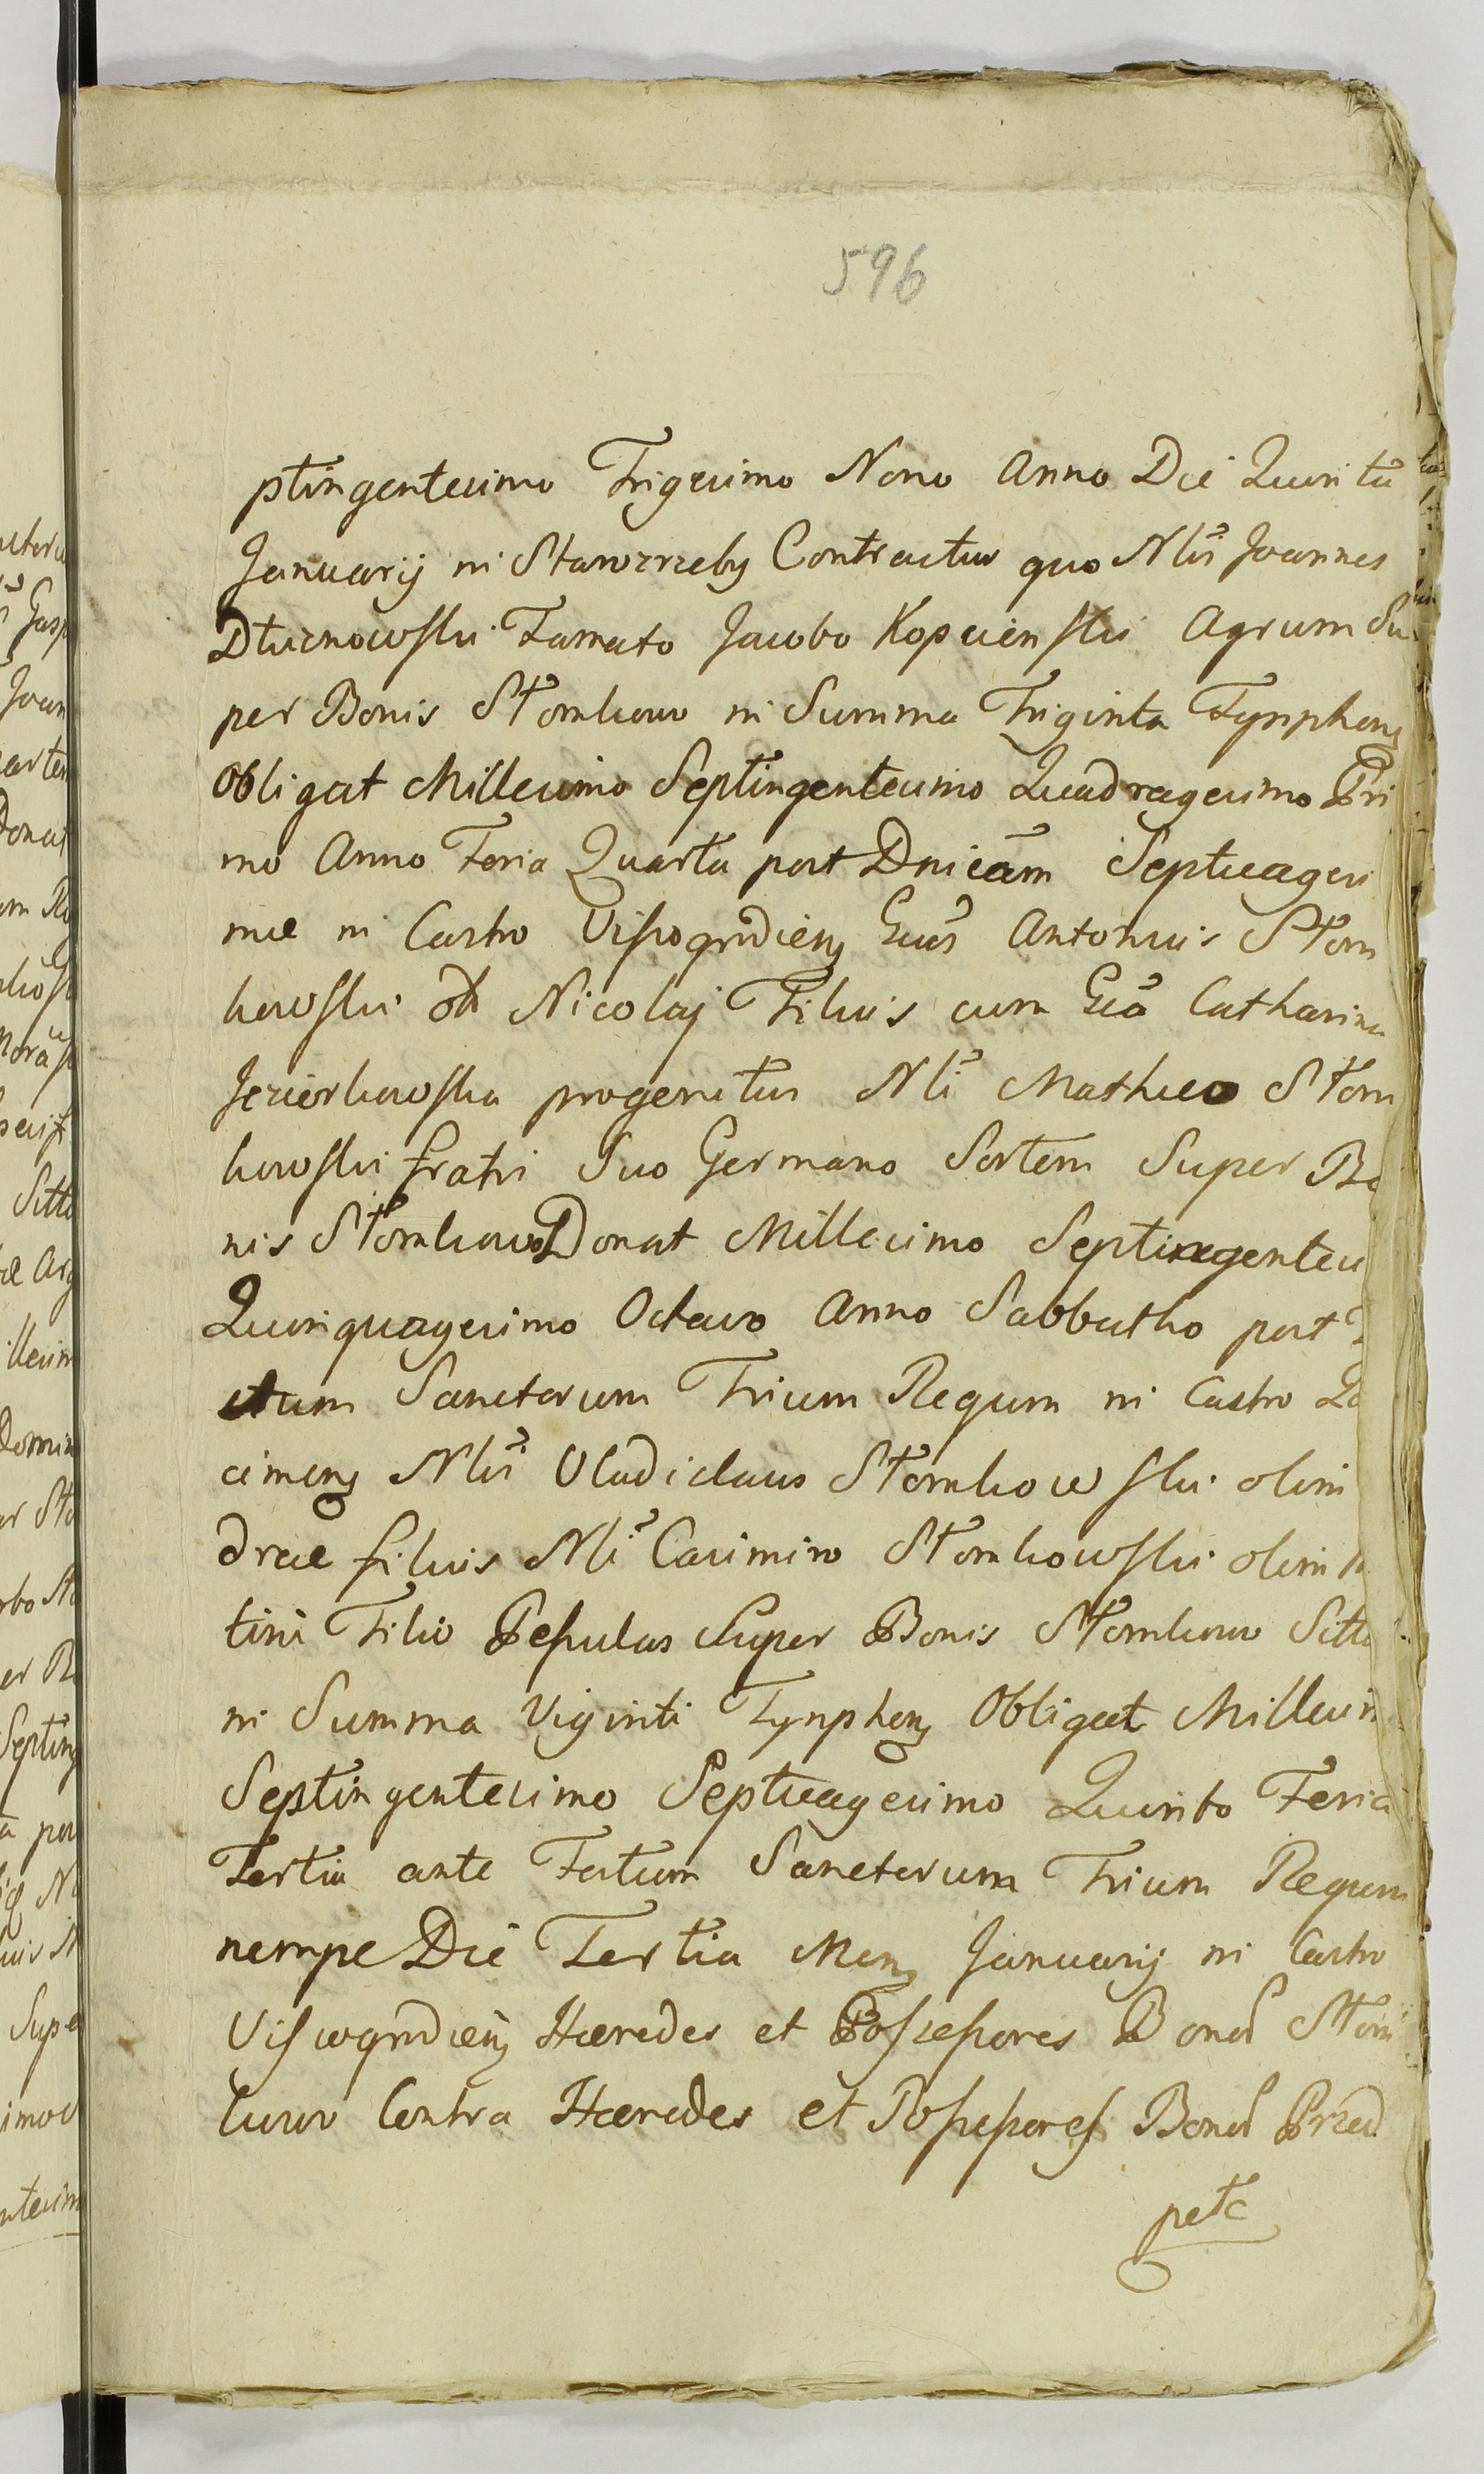 596
ptingentesimo Trigesimo Nono Anno Die Quinta
Januarij in Starozreby Contractus quo Nlis Joannes
Dłucnowski Famato Jacobo Kopcienski Agrum Su
per Bonis Słomkowo in Summa Triginta Tynphonᵹ
Obligat Millesimo Septingentesimo Quadragesimo Pri
mo Anno Feria Quarta post Dnicam Septuagesi
mae in Castro Vissogrodienᵹ Gnus Antonius Słom
kowski olim Nicolaj Filius cum Gnā Catharina
Jezierkowska progenitus Nli Matheo Słom
kowski fratri Suo Germano Sortem Super Bo
nis Słomkowo Donat Millesimo Septingentesi
Quinquagesimo Octavo Anno Sabbatho post
stum Sanctorum Trium Regum in Castro
cimenᵹ Nlis Vladislaus Słomkowski olim
dreae filius Nli Casimiro Słomkowski olim
tini Filio Pessulas Super Bonis Słomkowo Sitt
in Summa Viginti Tynphonᵹ Obligat Millesim
Septingentesimo Septuagesimo Quinto Feria
Tertia ante Festum Sanctorum Trium Regum
nempe Die Tertia Menᵹ Januarij in Castro
Vissogrodienᵹ Haeredes et Possessores Bonor Słom
kowo Contra Haeredes et Possessores Bonor Przed
petc